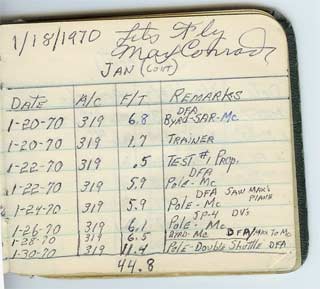 1/18/1970 Let's Fly
Max Conrad
JAN (CONT)
DATE A/C F/T REMARKS
1-20-70 319 6.8 DFA BYRD-SAR-MC
1-20-70 319 1.7 TRAINER
1-22-70 319 .5 TEST #1 PROP.
1-22-70 319 5.9 DFA Pole-Mc
1-24-70 319 5.9 DFA SAW MAX'S Pole-Mc PLANE
1-26-70 319 6.1 JP-4 DV's Pole-Mc
1-28-70 319 6.5 BYRD-MC DFA/MAX TO MC
1-30-70 11.4 Pole-Double Shuttle DFA
44.8